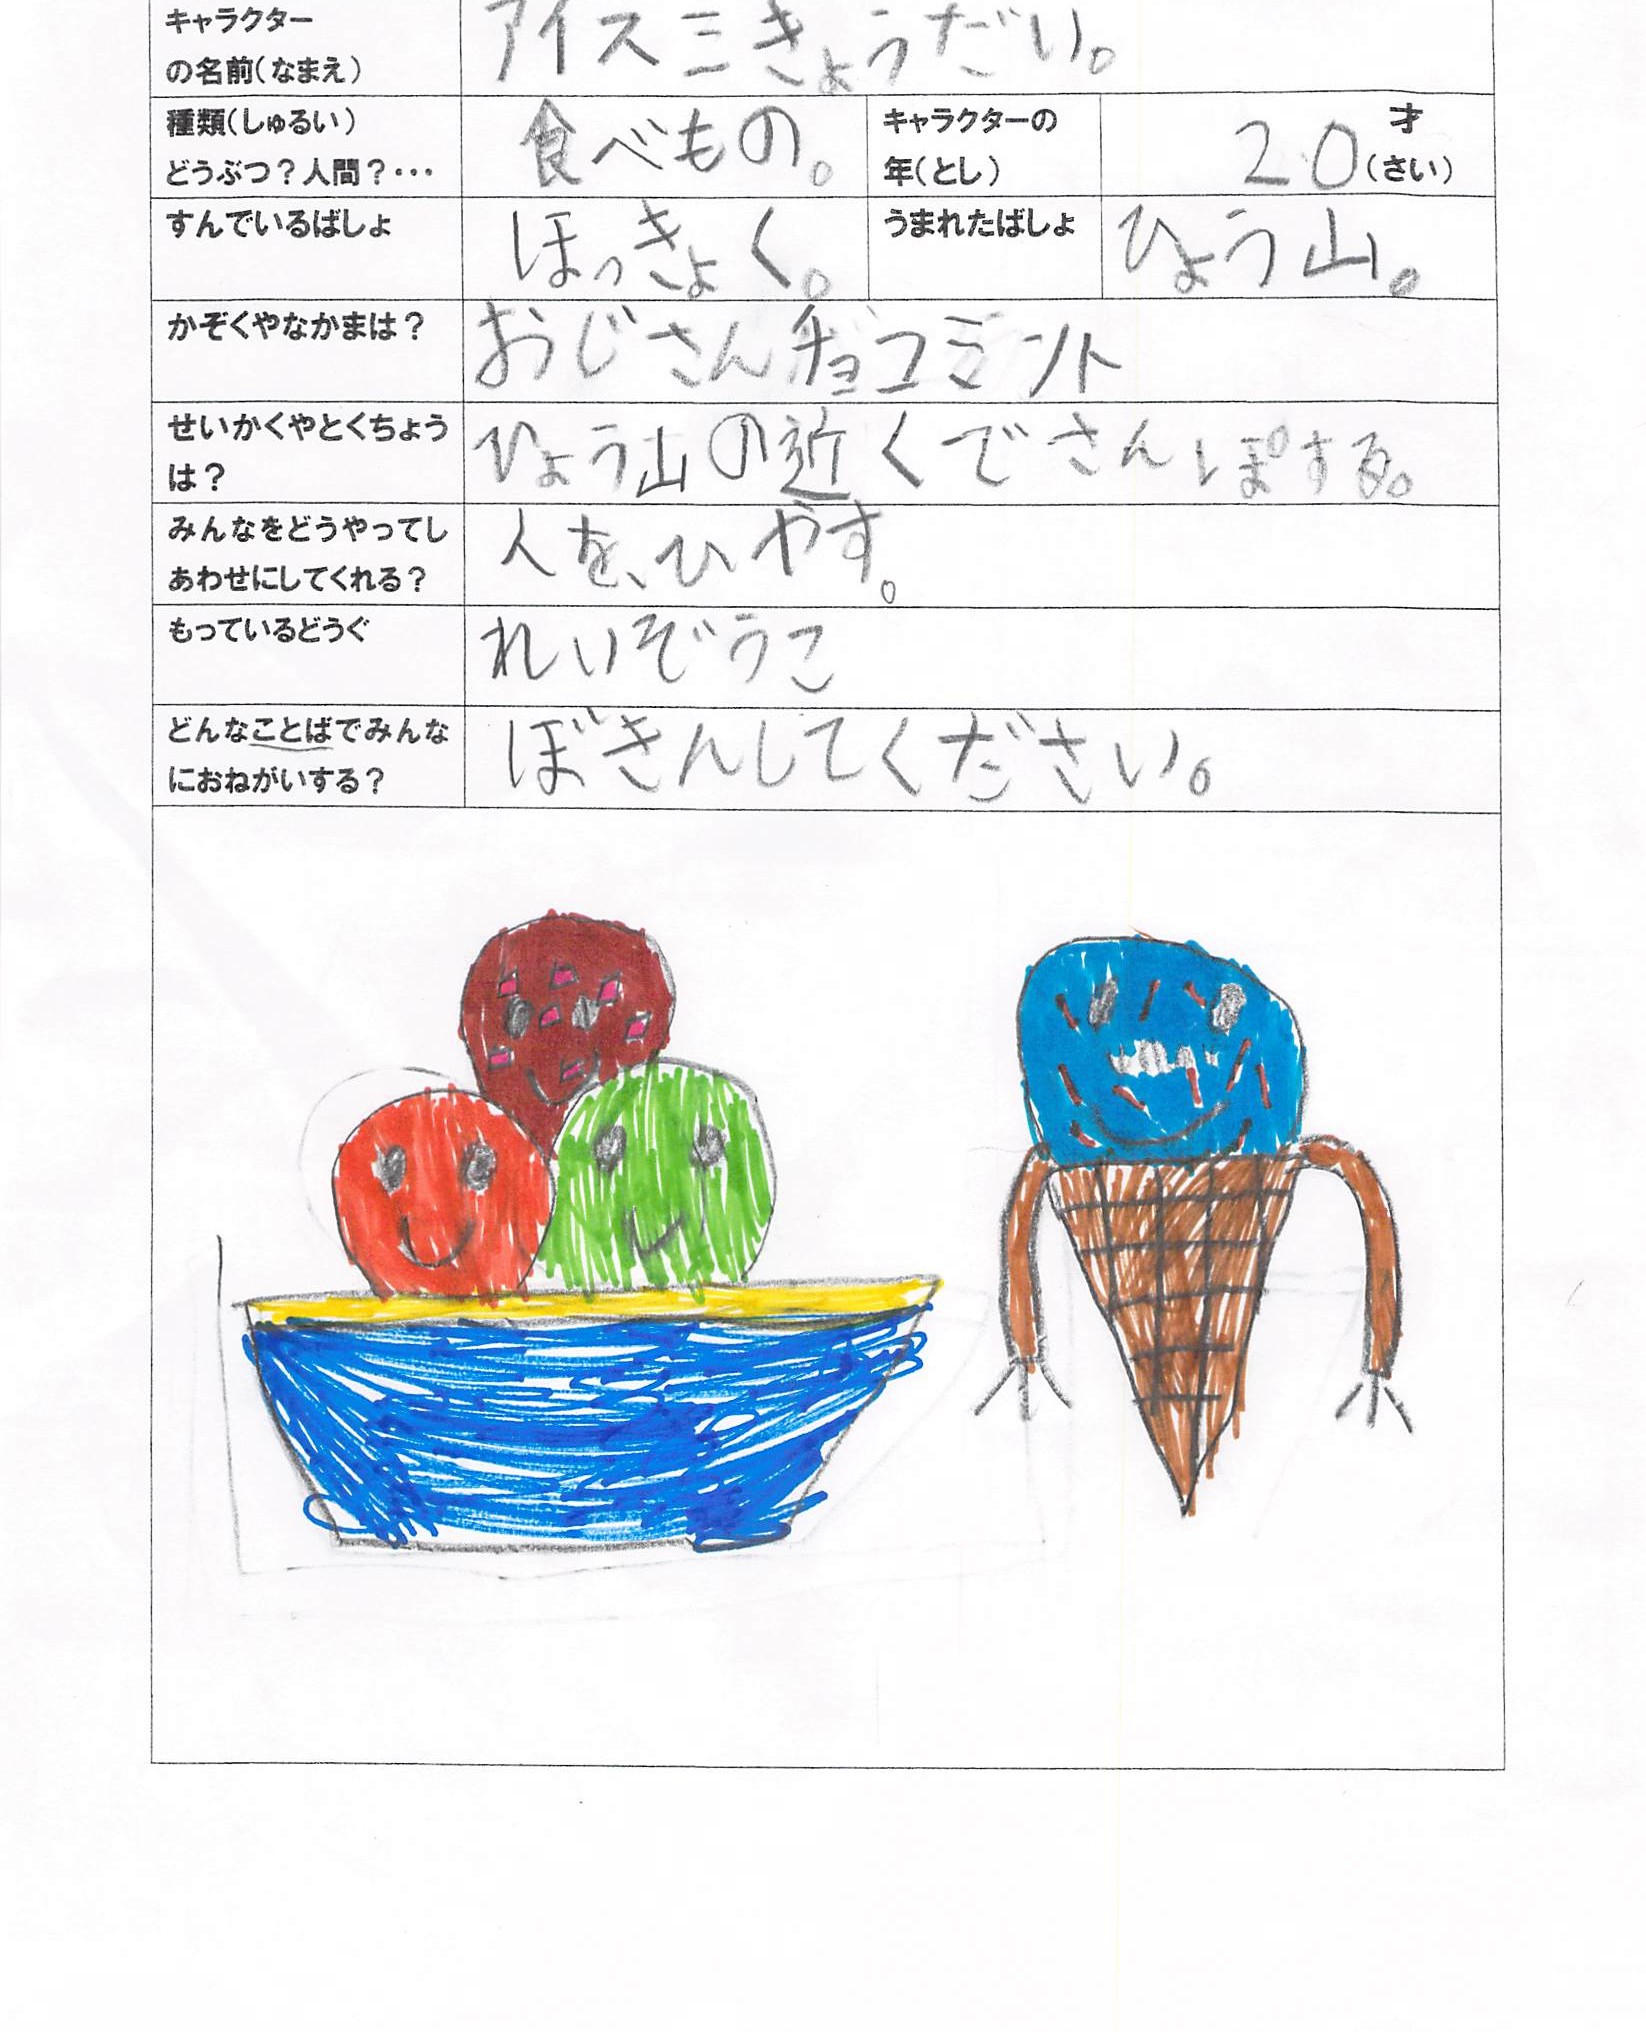 キャラクター
の名前(なまえ)
アイス三きょうだい。
種類(しゅるい)
どうぶつ?人間?・・・
食べもの。
キャラクターの
年(とし)
20
才
(さい)
すんでいるばしょ
ほっきょく。
うまれたばしょ
ひょう山。
かぞくやなかまは?
おじさんチョコミント
せいかくやとくちょう
は?
ひょう山の近くでさんぽする。
みんなをどうやってし
あわせにしてくれる?
人を、ひやす。
もっているどうぐ
れいぞうこ
どんなことばでみんな
におねがいする?
ぼきんしてください。